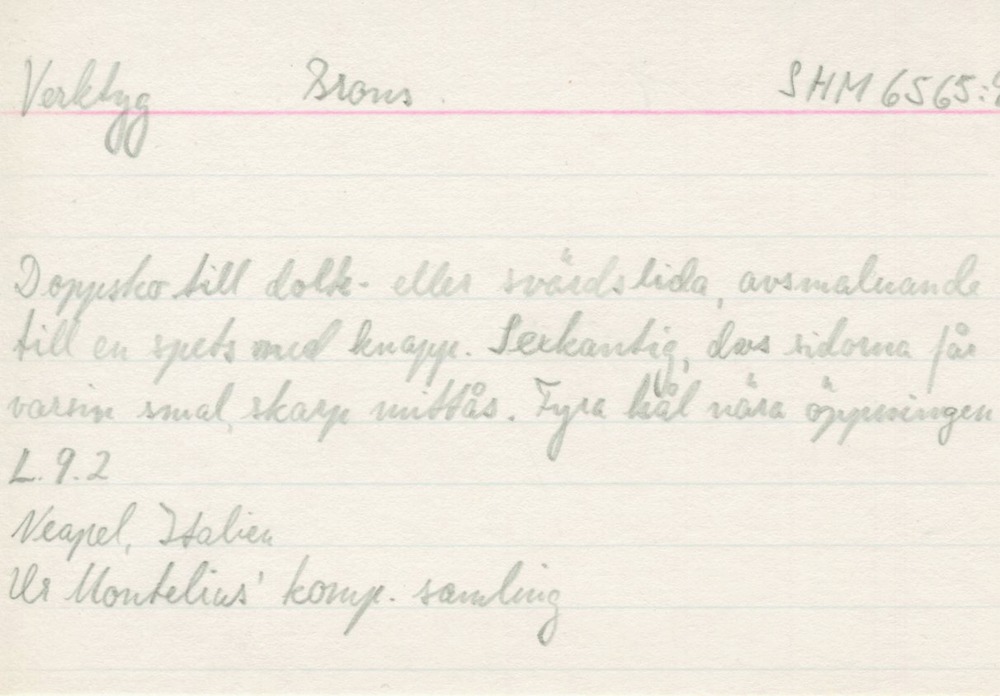 Verktyg Brons. SHM 6565:
Doppsko till dolk- eller svärdslida, avsmalnande
till en spets med knapp. Sexkantig, dvs sidorna får
varsin smal, skarp mittås. Fyra hål nära öppningen
L. 9.2
Neapel, Italien
Ur Montelius' komp. samling